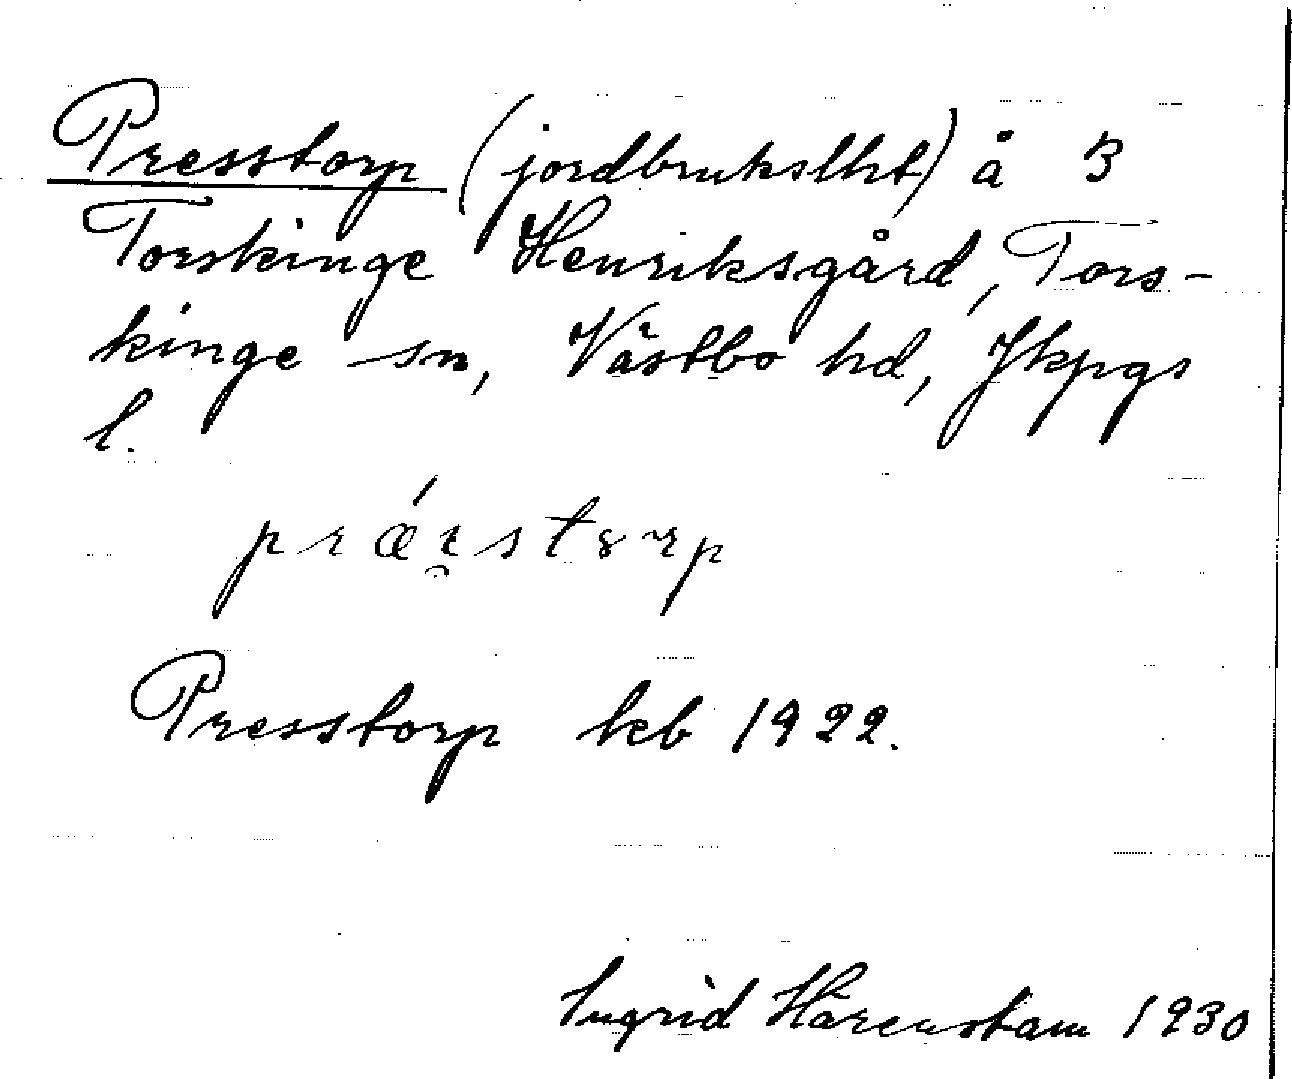 Presstorp (jordbrukslht) å 3
Torskinge Henriksgård, Tors-
kinge sn, Västbo hd, Jkpgs
l.
Presstorp kb 1922.
Ingrid Härenstam 1930